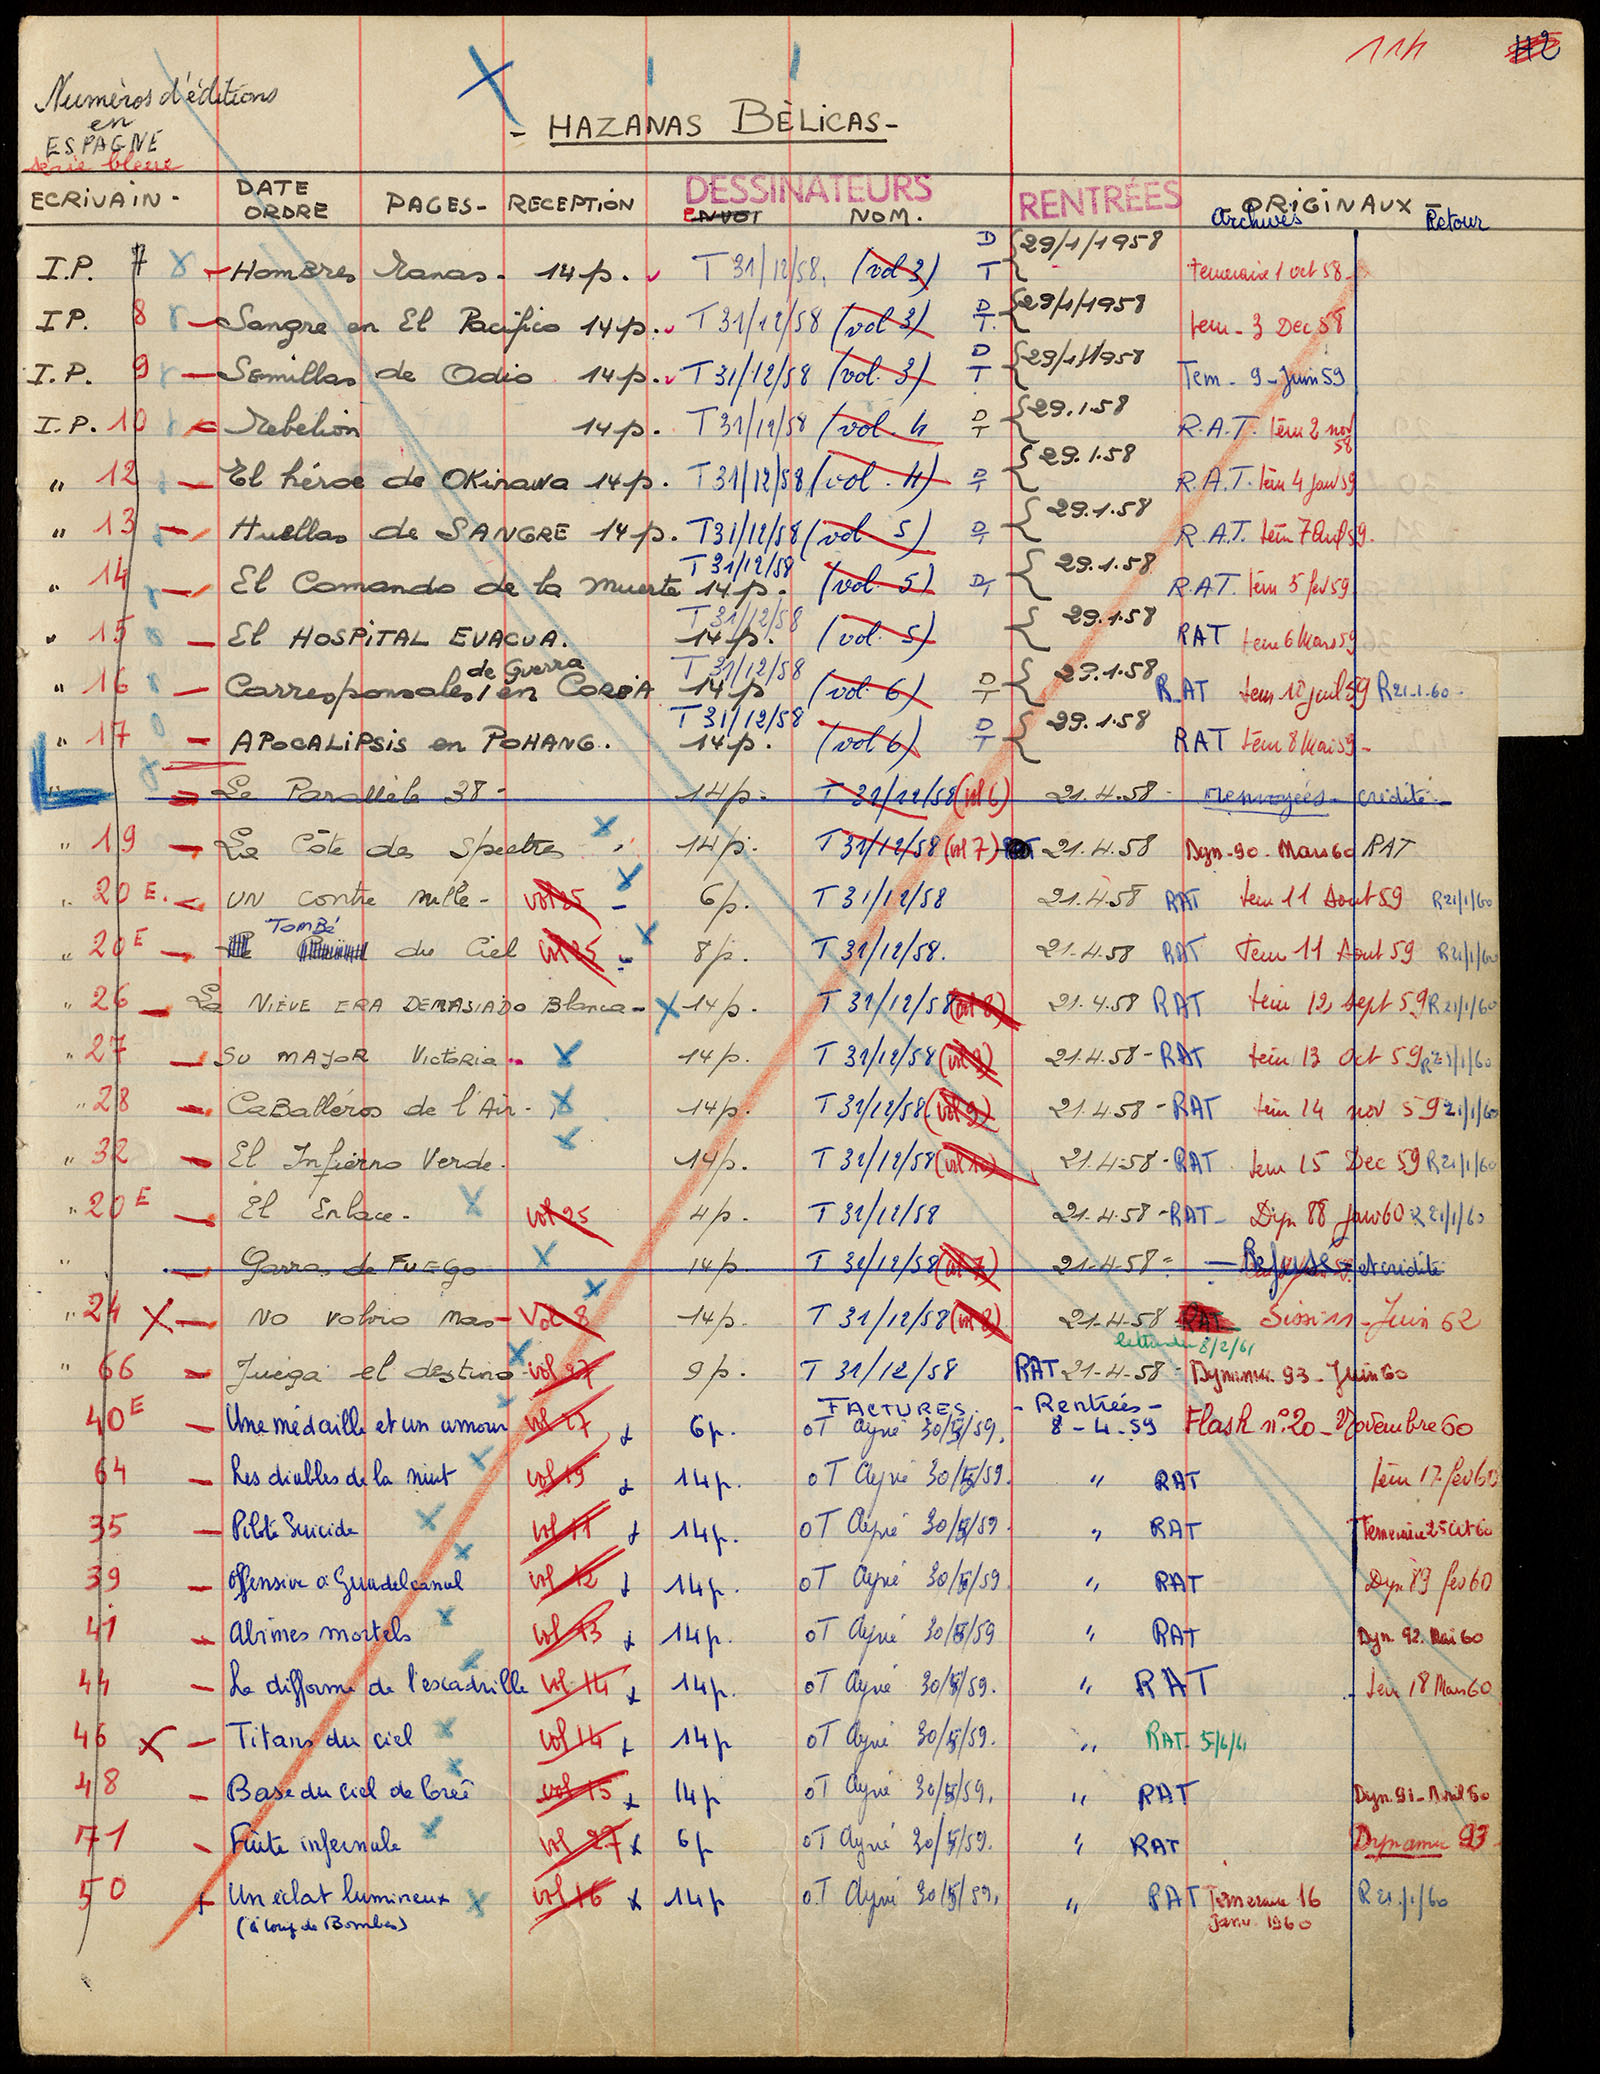 114
Numéros d'éditions
en
ESPAGNE
série bleue
- HAZANAS BÈLICAS -
ECRIVAIN - DATE ORDRE PAGES - RECEPTION DESSINATEURS ENVOI NOM. RENTRÉES ORIGINAUX Archives Retour
I.P. 7 - Hombres Ranas - 14 p. T 31/12/58. (vol 3) D T { 29/1/1958 temeraire 1 oct 58 -
I P. 8 - Sangre en El Pacifico 14 p. T 31/12/58 (vol 3) D T. { 29/1/1958 tem - 3 Dec 58
I.P. 9 - Semillas de Odio 14 p. T 31/12/58 (vol. 3) D T { 29/1/1958 Tem - 9 - Juin 59
I.P. 10 - Rebelion 14 p. T 31/12/58 (vol. 4 D T { 29.1.58 R.A.T. tém 2 nov 58
" 12 - El héroe de OKinawa 14 p. T 31/12/58 (vol. 4) D T { 29.1.58 R.A.T. tém 4 janv 59
" 13 - Huellas de SANGRE 14 p. T 31/12/58 (vol. 5) D T { 29.1.58 R.A.T. tém 7 59.
" 14 - El Comando de la muerte 14 p. T 31/12/58 (vol. 5) D T { 29.1.58 R.A.T. tém 5 fev 59
" 15 - El HOSPITAL EVACUA. 14 p. T 31/12/58 (vol. 5) { 29.1.58 RAT tem 6 Mars 59
" 16 - Corresponsales / de Guerra en COREA 14 p T 31/12/58 (vol. 6) D T { 29.1.58 R.AT tem 10 juil 59 R 21.1.60 -
" 17 - APOCALIPSIS en POHANG. 14 p. T 31/12/58 (vol 6) D T { 29.1.58 RAT tém 8 Mai 59 -
" - Le Parallèle 38 - 14 p. T 31/12/58 (vol 6) 21.4.58 - renvoyées - crédité -
" 19 - La Côte des Spectres 14 p. T 31/12/58 (vol 7) 21.4.58 Dyn. 90 - Mars 60 RAT
" 20 E. - UN contre mille - vol 25 - 6 p. T 31/12/58 21.4.58 RAT tem 11 Aout 59 R 21/1/60
" 20 E - TomBé du Ciel vol 25 - 8 p. T 31/12/58. 21.4.58 RAT Tem 11 Aout 59 R 21/1/60
" 26 - La NIEVE ERA DEMASIADO Blanca - x 14 p. T 31/12/58 (vol 8) 21.4.58 RAT tém 12 sept 59 R 21/1/60
" 27 - SU MAYOR Victoria - x 14 p. T 31/12/58 (vol 9) 21.4.58 - RAT tém 13 oct 59 R 21/1/60
" 28 - CaBalléros de l'Air - x 14 p. T 31/12/58 (vol 9) 21.4.58 - RAT tém 14 nov 59 21/1/60
" 32 - El Infierno Verde. x 14 p. T 31/12/58 (vol 10) 21.4.58 - RAT tem 15 Dec 59 R 21/1/60
" 20 E - El Enlace - x vol 25 4 p. T 31/12/58 21.4.58 - RAT - Dyn 88 janv 60 R 21/1/60
" - Garras de FUEGO x 14 p. T 31/12/58 (vol 7) 21-4-58 - - Refusé et crédité
" 24 X - NO volvio mas - Vol 8 x 14 p. T 31/12/58 (vol 8) 21-4-58 RAT Sissi 11 - Juin 62
8/2/61
" 66 - Juega el destino - vol 27 x 9 p. T 31/12/58 RAT 21-4-58 - Dynamic 93 - Juin 60
FACTURES. - Rentrées -
40 E - Une médaille et un amour vol 27 x 6 p. oT Ayné 30/5/59. 8 - 4 - 59 Flash n° 20 - Novembre 60
64 - Les diables de la nuit vol 19 x 14 p. oT Ayné 30/5/59. " RAT tém 17 - fev 60
35 - Pilote Suicide vol 11 x 14 p. oT Ayné 30/5/59 " RAT Temeraire 25 oct 60
39 - offensive à Guadelcanal vol 12 x 14 p. oT Ayné 30/5/59 " RAT Dyn 89 fev 60
41 - Abîmes mortels vol 13 x 14 p. oT Ayné 30/5/59 " RAT Dyn. 92. Mai 60
44 - La difforme de l'escadrille vol 14 x 14 p. oT Ayné 30/5/59. " RAT tem 18 Mars 60
46 X - Titans du ciel vol 14 x 14 p oT Ayné 30/5/59. " RAT 5/6/61
48 - Base du ciel de Corée vol 15 x 14 p oT Ayné 30/5/59. " RAT Dyn. 91 - Avril 60
71 - Fuite infernale vol 27 x 6 p oT Ayné 30/5/59. " RAT Dynamic 93 -
50 + Un éclat lumineux vol 16 x 14 p o.T Ayné 30/5/59. " RAT Temeraire 16 Janv. 1960 R 21/1/60
(à coup de Bombes)